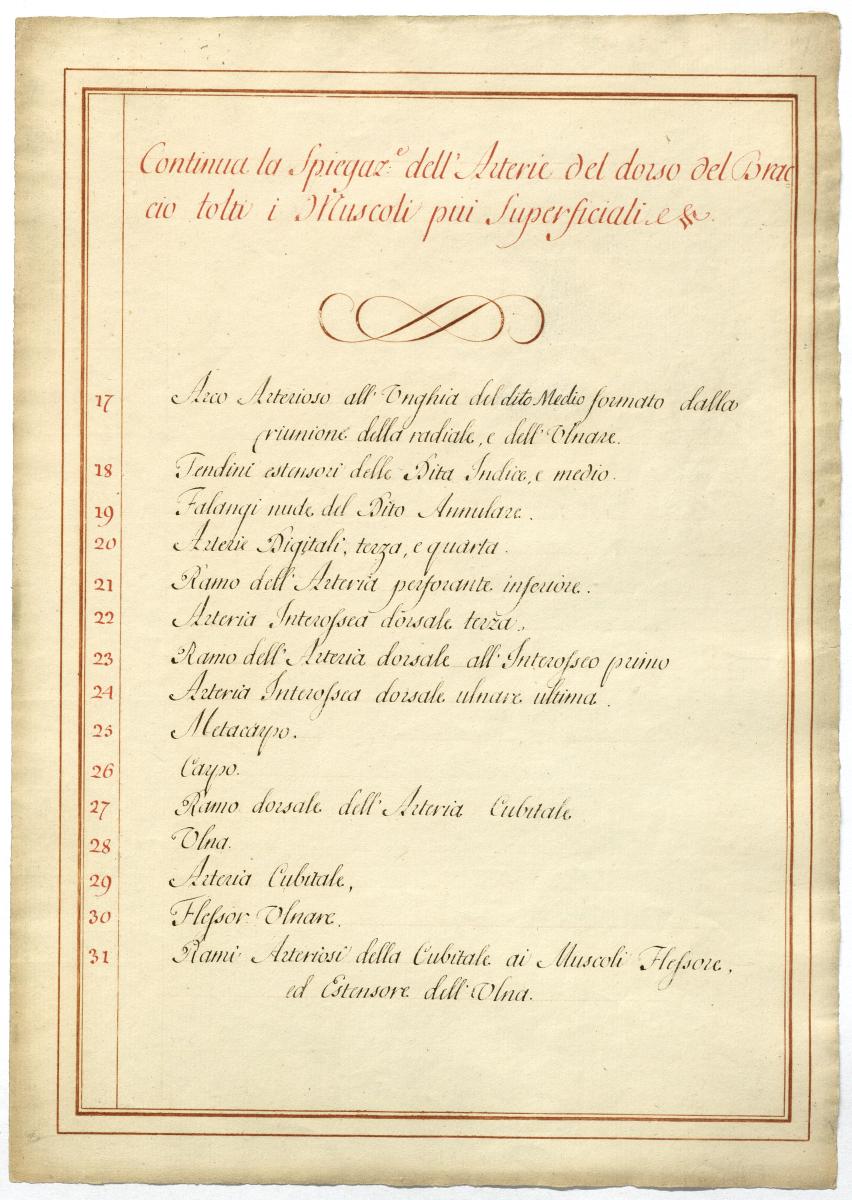 Continua la Spiegaz:e dell'Arterie del dorso del Brac=
cio tolti i Muscoli pui Superficiali e &.
17 Arco Arterioso all'Unghia del dito Medio formato dalla
riunione della radiale, e dell'Ulnare.
18 Tendini estensori delle Dita Indice, e medio.
19 Falangi nude del Dito Annulare.
20 Arterie Digitali, terza, e quarta.
21 Ramo dell'Arteria perforante inferiore.
22 Arteria Interossea dorsale terza.
23 Ramo dell'Arteria dorsale all'Interosseo primo
24 Arteria Interossea dorsale ulnare ultima.
25 Metacarpo.
26 Carpo.
27 Ramo dorsale dell'Arteria Cubitale
28 Ulna.
29 Arteria Cubitale,
30 Flessor Ulnare.
31 Rami Arteriosi della Cubitale ai Muscoli Flessore,
ed Estensore dell'Ulna.